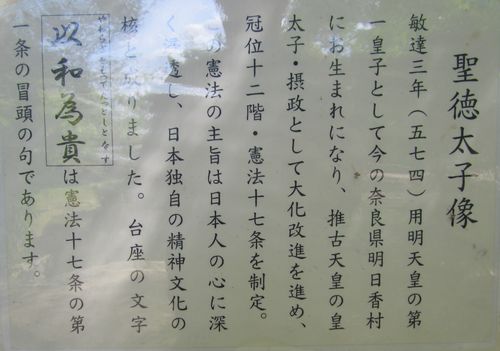 聖徳太子像
敏達三年（五七四）用明天皇の第
一皇子として今の奈良県明日香村
にお生まれになり、推古天皇の皇
太子・摂政として大化改進を進め、
冠位十二階・憲法十七条を制定。
の憲法の主旨は日本人の心に深
く浸透し、日本独自の精神文化の
核となりました。台座の文字
やわらぎをもってたっとしとなす
以和為貴は憲法十七条の第
一条の冒頭の句であります。